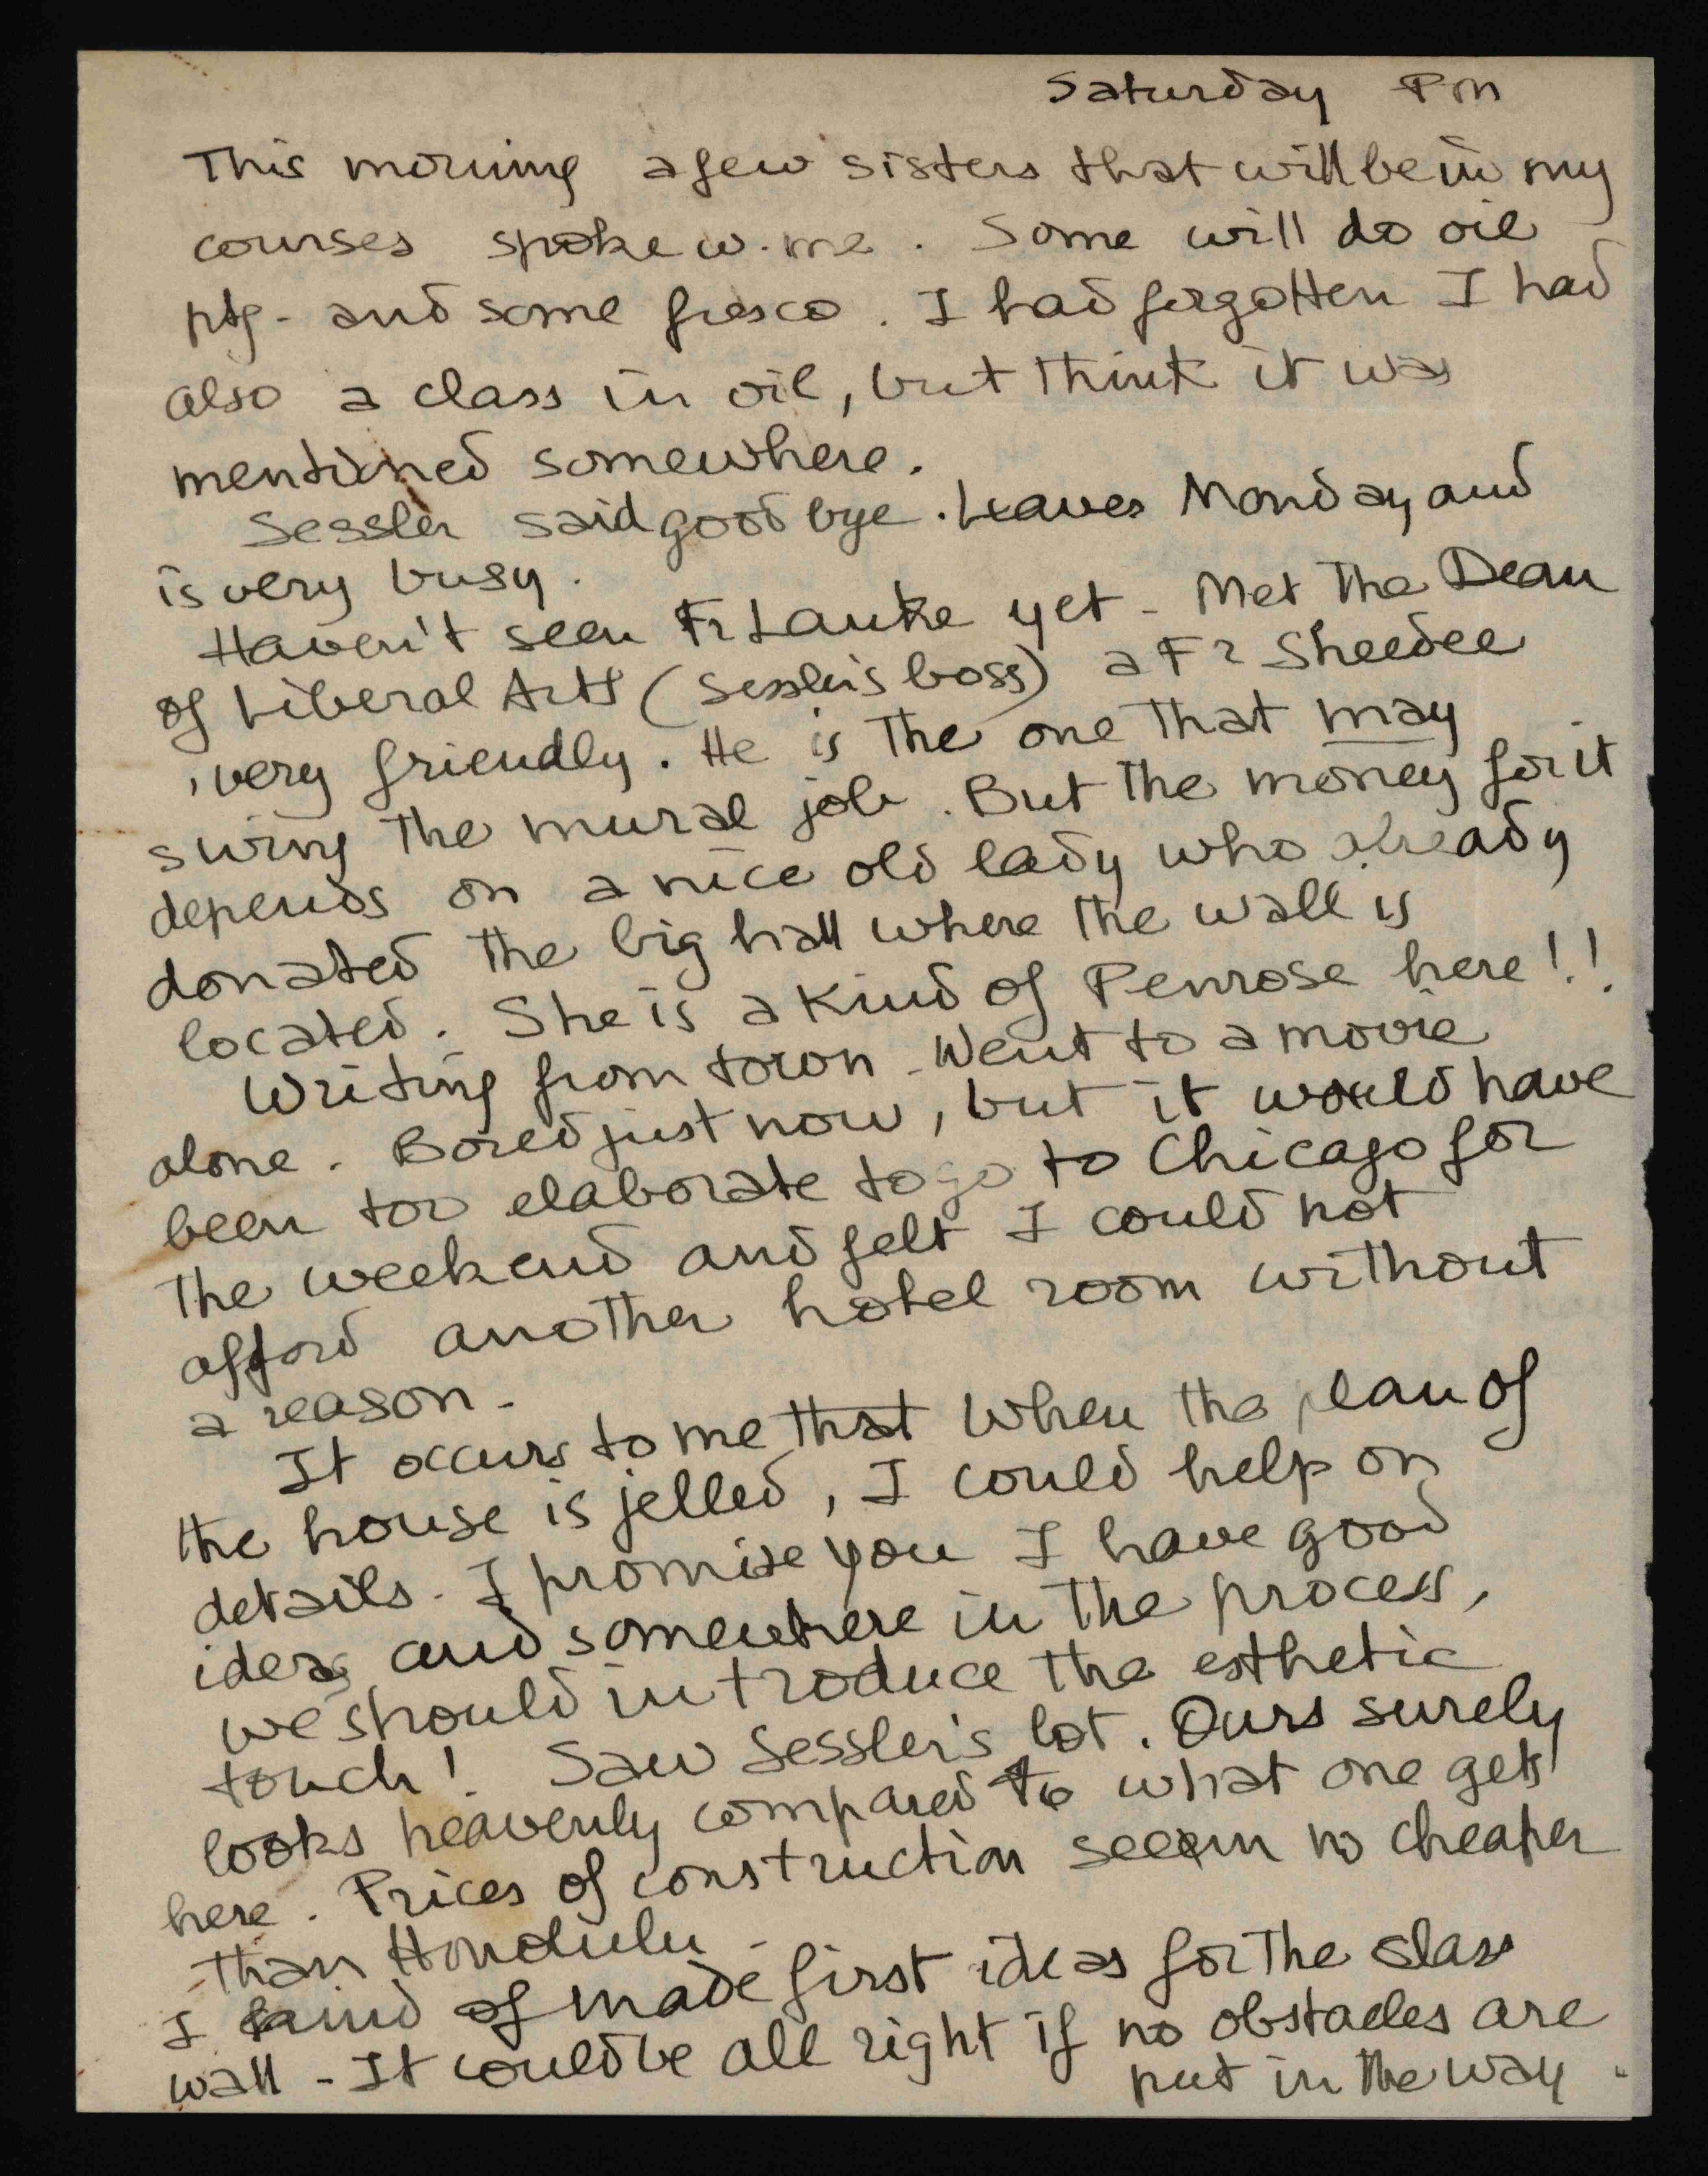 Saturday PM
This morning a few sisters that will be in my
courses spoke w. me. Some will do oil
ptg - and some fresco. I had forgotten I had
also a class in oil, but think it was
mentioned somewhere.
Sessler said good bye. Leaves Monday and
is very busy.
Haven't seen Fr Lauke yet - Met the Dean
of Liberal Arts (Sessler's boss) a Fr Sheedee
, very friendly. He is the one that may
swing the mural job. But the money for it
depends on a nice old lady who already
donated the big hall where the wall is
located. She is a kind of Penrose here!!
Writing from town - Went to a movie
alone. Bored just now, but it would have
been too elaborate to go to Chicago for
the weekend and felt I could not
afford another hotel room without
a reason -
It occurs to me that when the plan of
the house is jelled, I could help on
details - I promise you I have good
ideas and somewhere in the process,
we should introduce the esthetic
touch! Saw Sessler's lot. Ours surely
looks heavenly compared to what one gets
here. Prices of construction seem no cheaper
than Honolulu -
I kind of made first ideas for the class
wall - It could be all right if no obstacles are
put in the way.